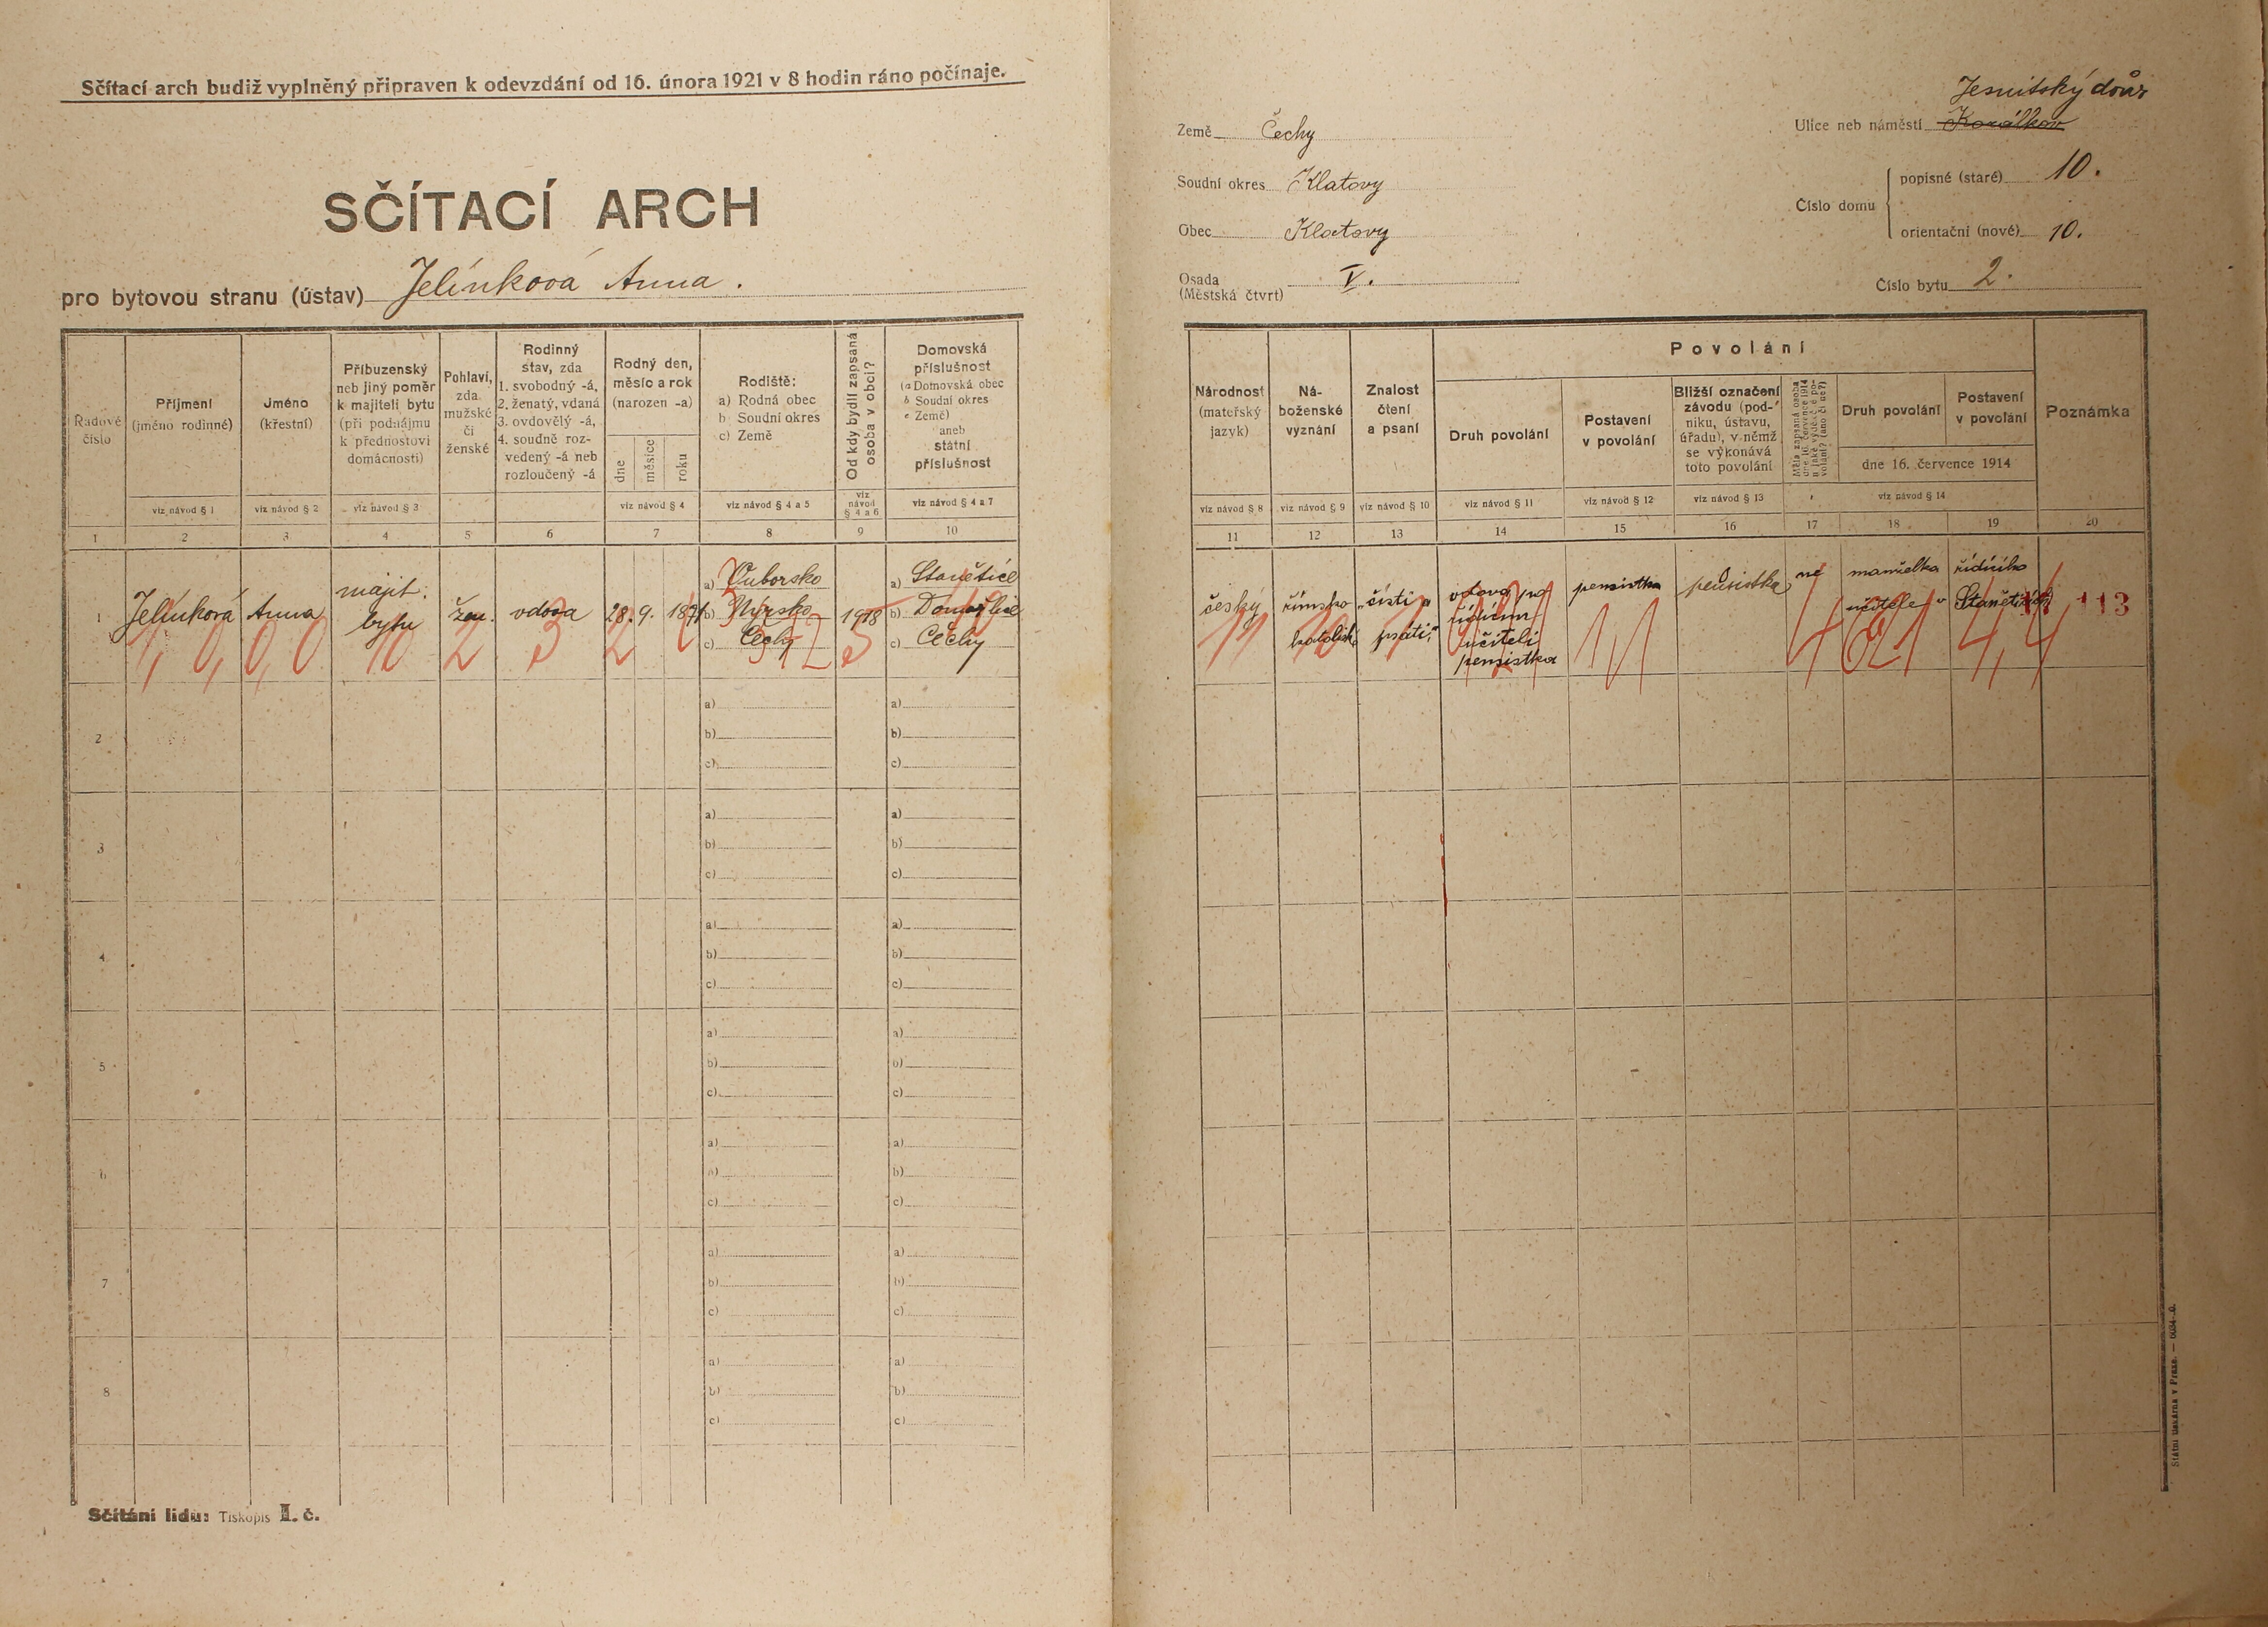 Sčítací arch budiž vyplněný připraven k odevzdání od 16. února 1921 v 8 hodin ráno počínaje.
SČÍTACÍ ARCH
pro bytovou stranu (ústav) Jelínková Anna.
Řadové číslo
Příjmení
(jméno rodinné)
viz návod § 1
Jméno
(křestní)
viz návod § 2
Příbuzenský
neb jiný poměr
k majiteli bytu
(při podnájmu
k přednostovi
domácnosti)
viz návod § 3
Pohlaví,
zda
mužské
či
ženské
Rodinný
stav, zda
1. svobodný -á,
2. ženatý, vdaná
3. ovdovělý -á,
4. soudně roz-
vedený -á neb
rozloučený -á
Rodný den,
měsíc a rok
(narozen -a)
dne
měsíce
roku
viz návod § 4
Rodiště:
a) Rodná obec
b) Soudní okres
c) Země
viz návod § 4 a 5
Od kdy bydlí zapsaná
osoba v obci?
viz
návod
§ 4 a 6
Domovská
příslušnost
(a Domovská obec
b Soudní okres
c Země)
aneb
státní
příslušnost
viz návod § 4 a 7
1 2 3 4 5 6 7 8 9 10
1
Jelínková
Anna
majit.
bytu
žen.
vdova
28. 9. 1871
a)
b) Nýrsko
c) Čechy
1918
a) Stanětice
b) Domažlice
c) Čechy
1, 0, 0, 0 10 2 3 2
2
a) a)
b) b)
c) c)
3
a) a)
b) b)
c) c)
4
a) a)
b) b)
c) c)
5
a) a)
b) b)
c) c)
6
a) a)
b) b)
c) c)
7
a) a)
b) b)
c) c)
8
a) a)
b) b)
c) c)
Sčítání lidu: Tiskopis I. č.
Země Čechy
Soudní okres Klatovy
Obec Klatovy
Osada
(Městská čtvrt) V.
Jesuitský dvůr
Ulice neb náměstí
Číslo domu
popisné (staré) 10.
orientační (nové) 10.
Číslo bytu 2.
Národnost
(mateřský
jazyk)
viz návod § 8
Ná-
boženské
vyznání
viz návod § 9
Znalost
čtení
a psaní
viz návod § 10
Povolání
Druh povolání
viz návod § 11
Postavení
v povolání
viz návod § 12
Bližší označení
závodu (pod-
niku, ústavu,
úřadu), v němž
se výkonává
toto povolání
viz návod § 13
Měla zapsaná osoba
dne 16. července 1914
Druh povolání
Postavení
v povolání
dne 16. července 1914
viz návod § 14
Poznámka
11 12 13 14 15 16 17 18 19 20
český
římsko
katolické
„čísti a
psáti“
vdova po
řídícím
učiteli
pensistka
pensistka
pensistka
ne
manželka
učitele v
řídícího
Staněticích
113
Státní tiskárna v Praze.